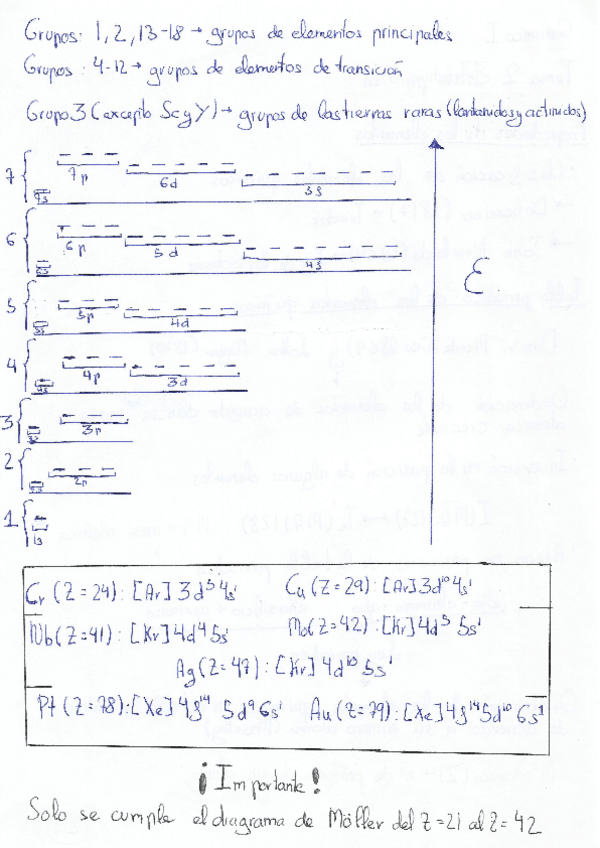 Grupos: 1, 2, 13-18 → grupos de elementos principales
Grupos: 4-12 → grupos de elementos de transición
Grupo 3 (excepto Sc y Y) → grupos de las tierras raras (lantanidos y actinidos)
7 7s 7p 6d 5f
6 6s 6p 5d 4f
5 5s 5p 4d
4 4s 4p 3d
3 3s 3p
2 2s 2p
1 1s
E
Cr (Z=24): [Ar] 3d⁵ 4s¹ Cu (Z=29): [Ar] 3d¹⁰ 4s¹
Nb (Z=41): [Kr] 4d⁴ 5s¹ Mo (Z=42): [Kr] 4d⁵ 5s¹
Ag (Z=47): [Kr] 4d¹⁰ 5s¹
Pt (Z=78): [Xe] 4f¹⁴ 5d⁹ 6s¹ Au (Z=79): [Xe] 4f¹⁴ 5d¹⁰ 6s¹
¡Importante!
Solo se cumple el diagrama de Möller del Z=21 al Z=42